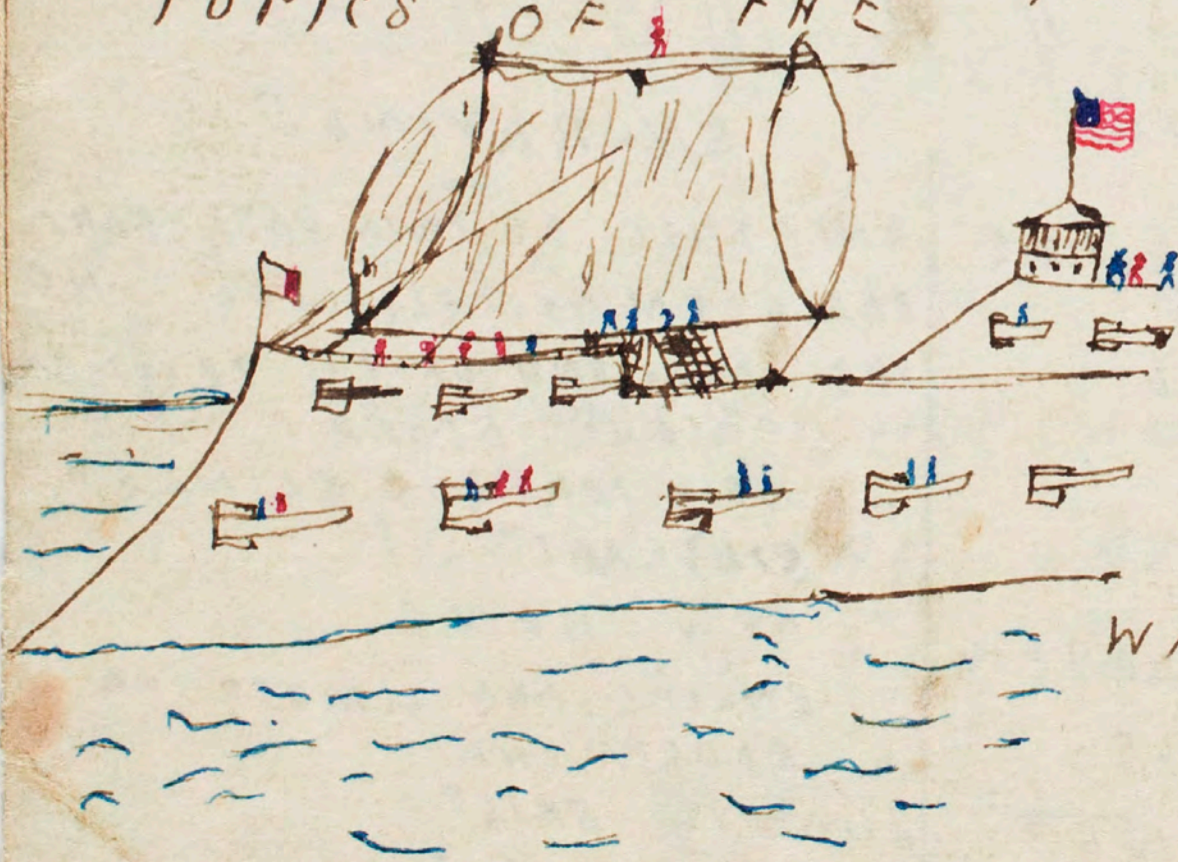 TOPICS OF THE